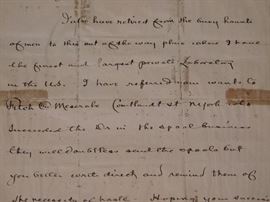 I also have retired from the busy haunts
of men to this out of the way place where I have
the finest and largest private Laboratory
in the U.S. I have referred your wants to
Fitch & Meserole Cortlandt st NYork who
succeeded the Dr in the spool business
they will doubtless send the spools but
you better write direct and remind them of
the necessity of haste. Hoping your success